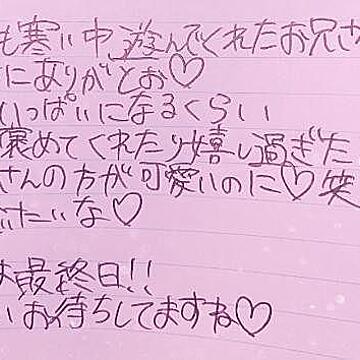 も寒い中遊んでくれたお兄さ
にありがとお♡
いっぱいになるくらい
褒めてくれたり嬉し過ぎた
さんの方が可愛いのに♡笑
たいな♡
最終日!!
お待ちしてますね♡